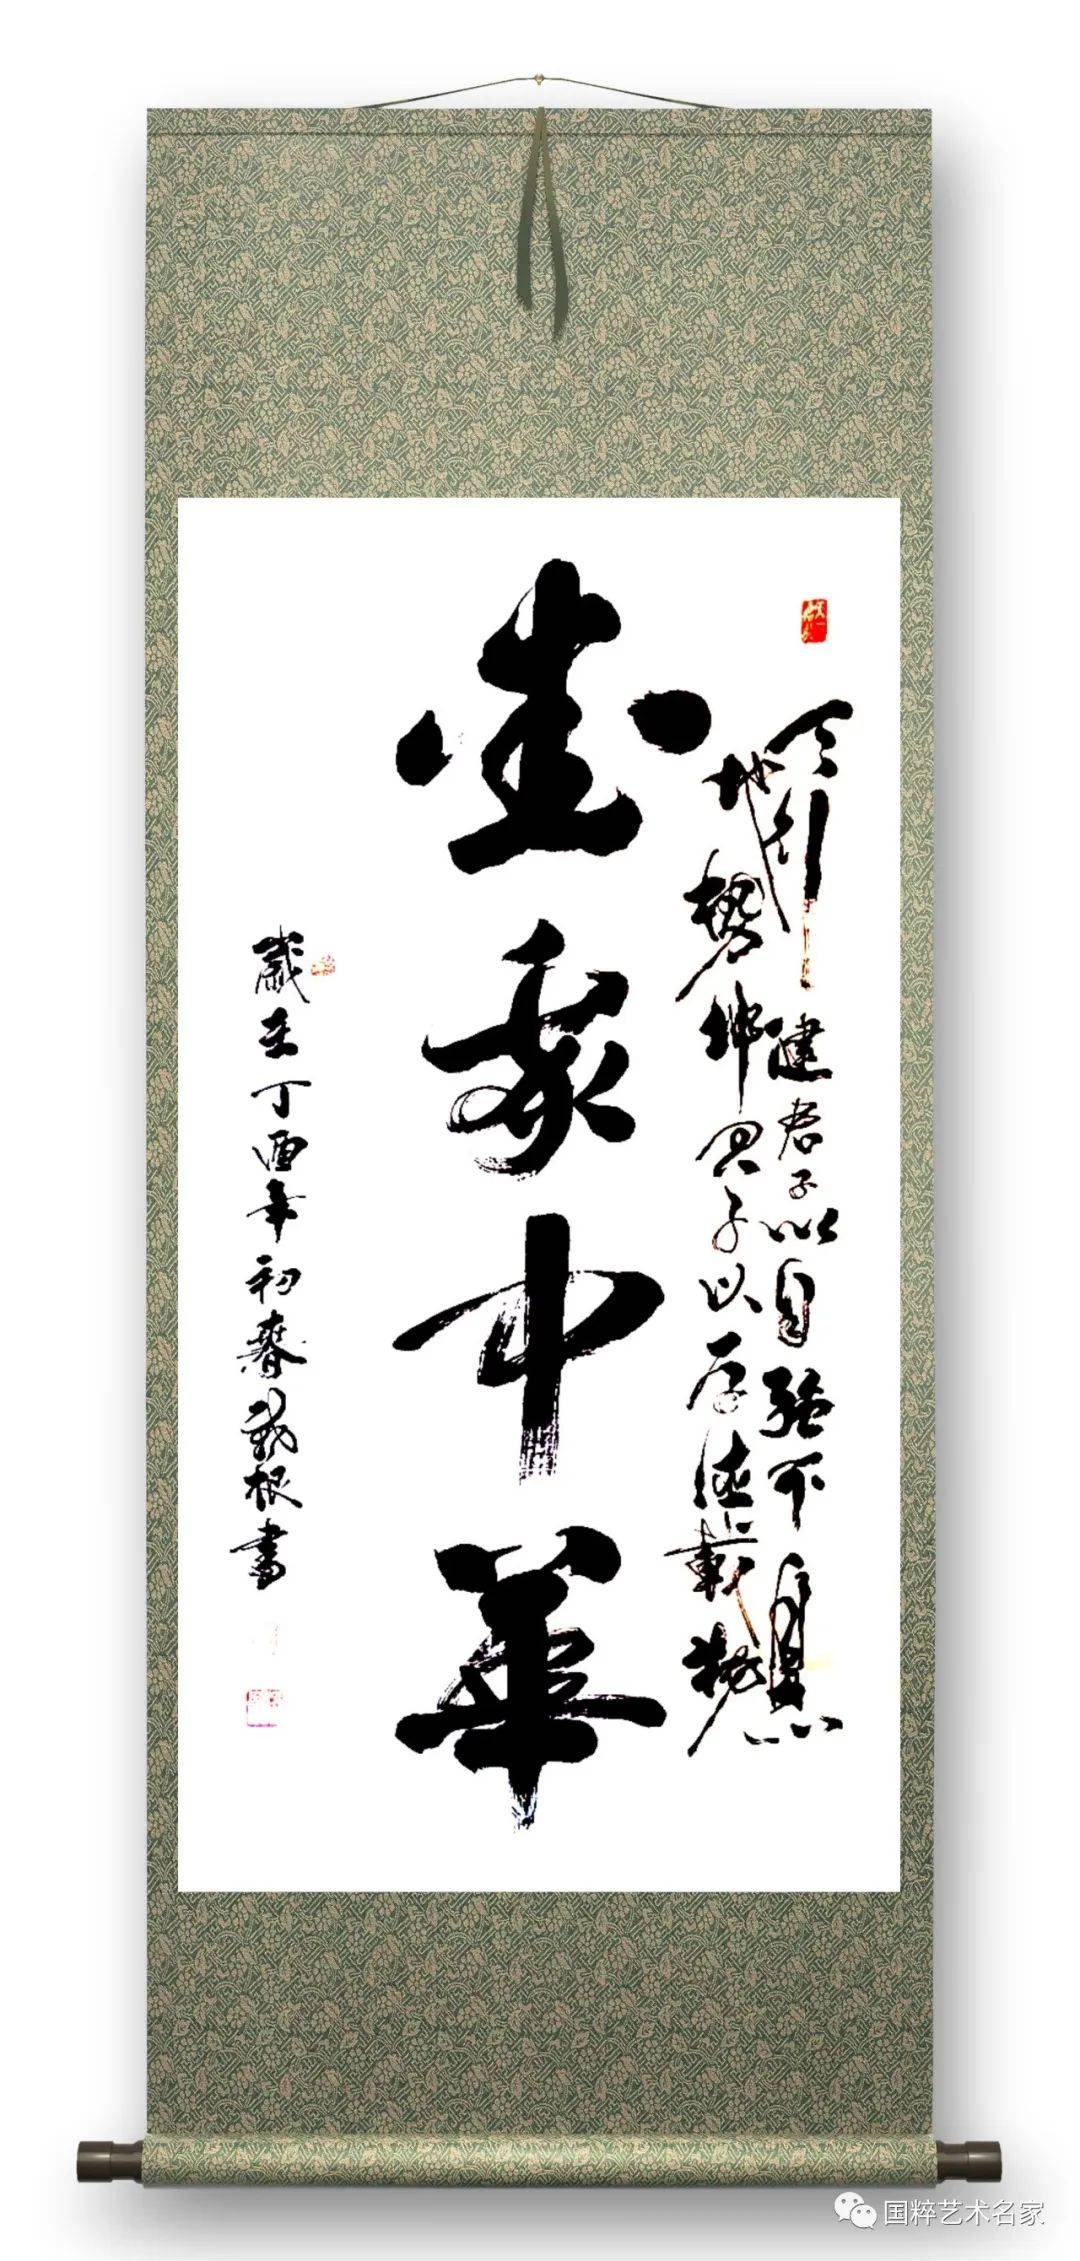 天行健君子以自強不息
地勢坤君子以厚德載物
我中華
歲在丁酉年初春根書
国粹艺术名家